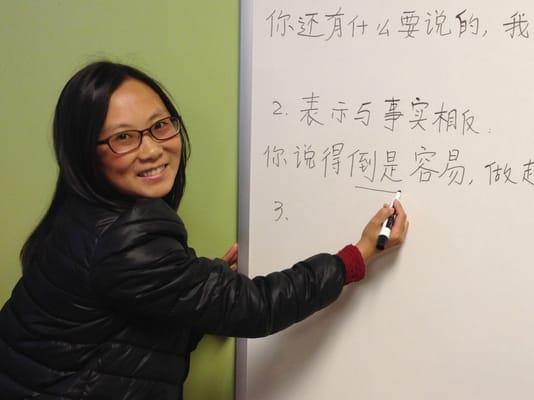 你还有什么要说的, 我
2. 表示与事实相反:
你说得倒是容易, 做起
3.